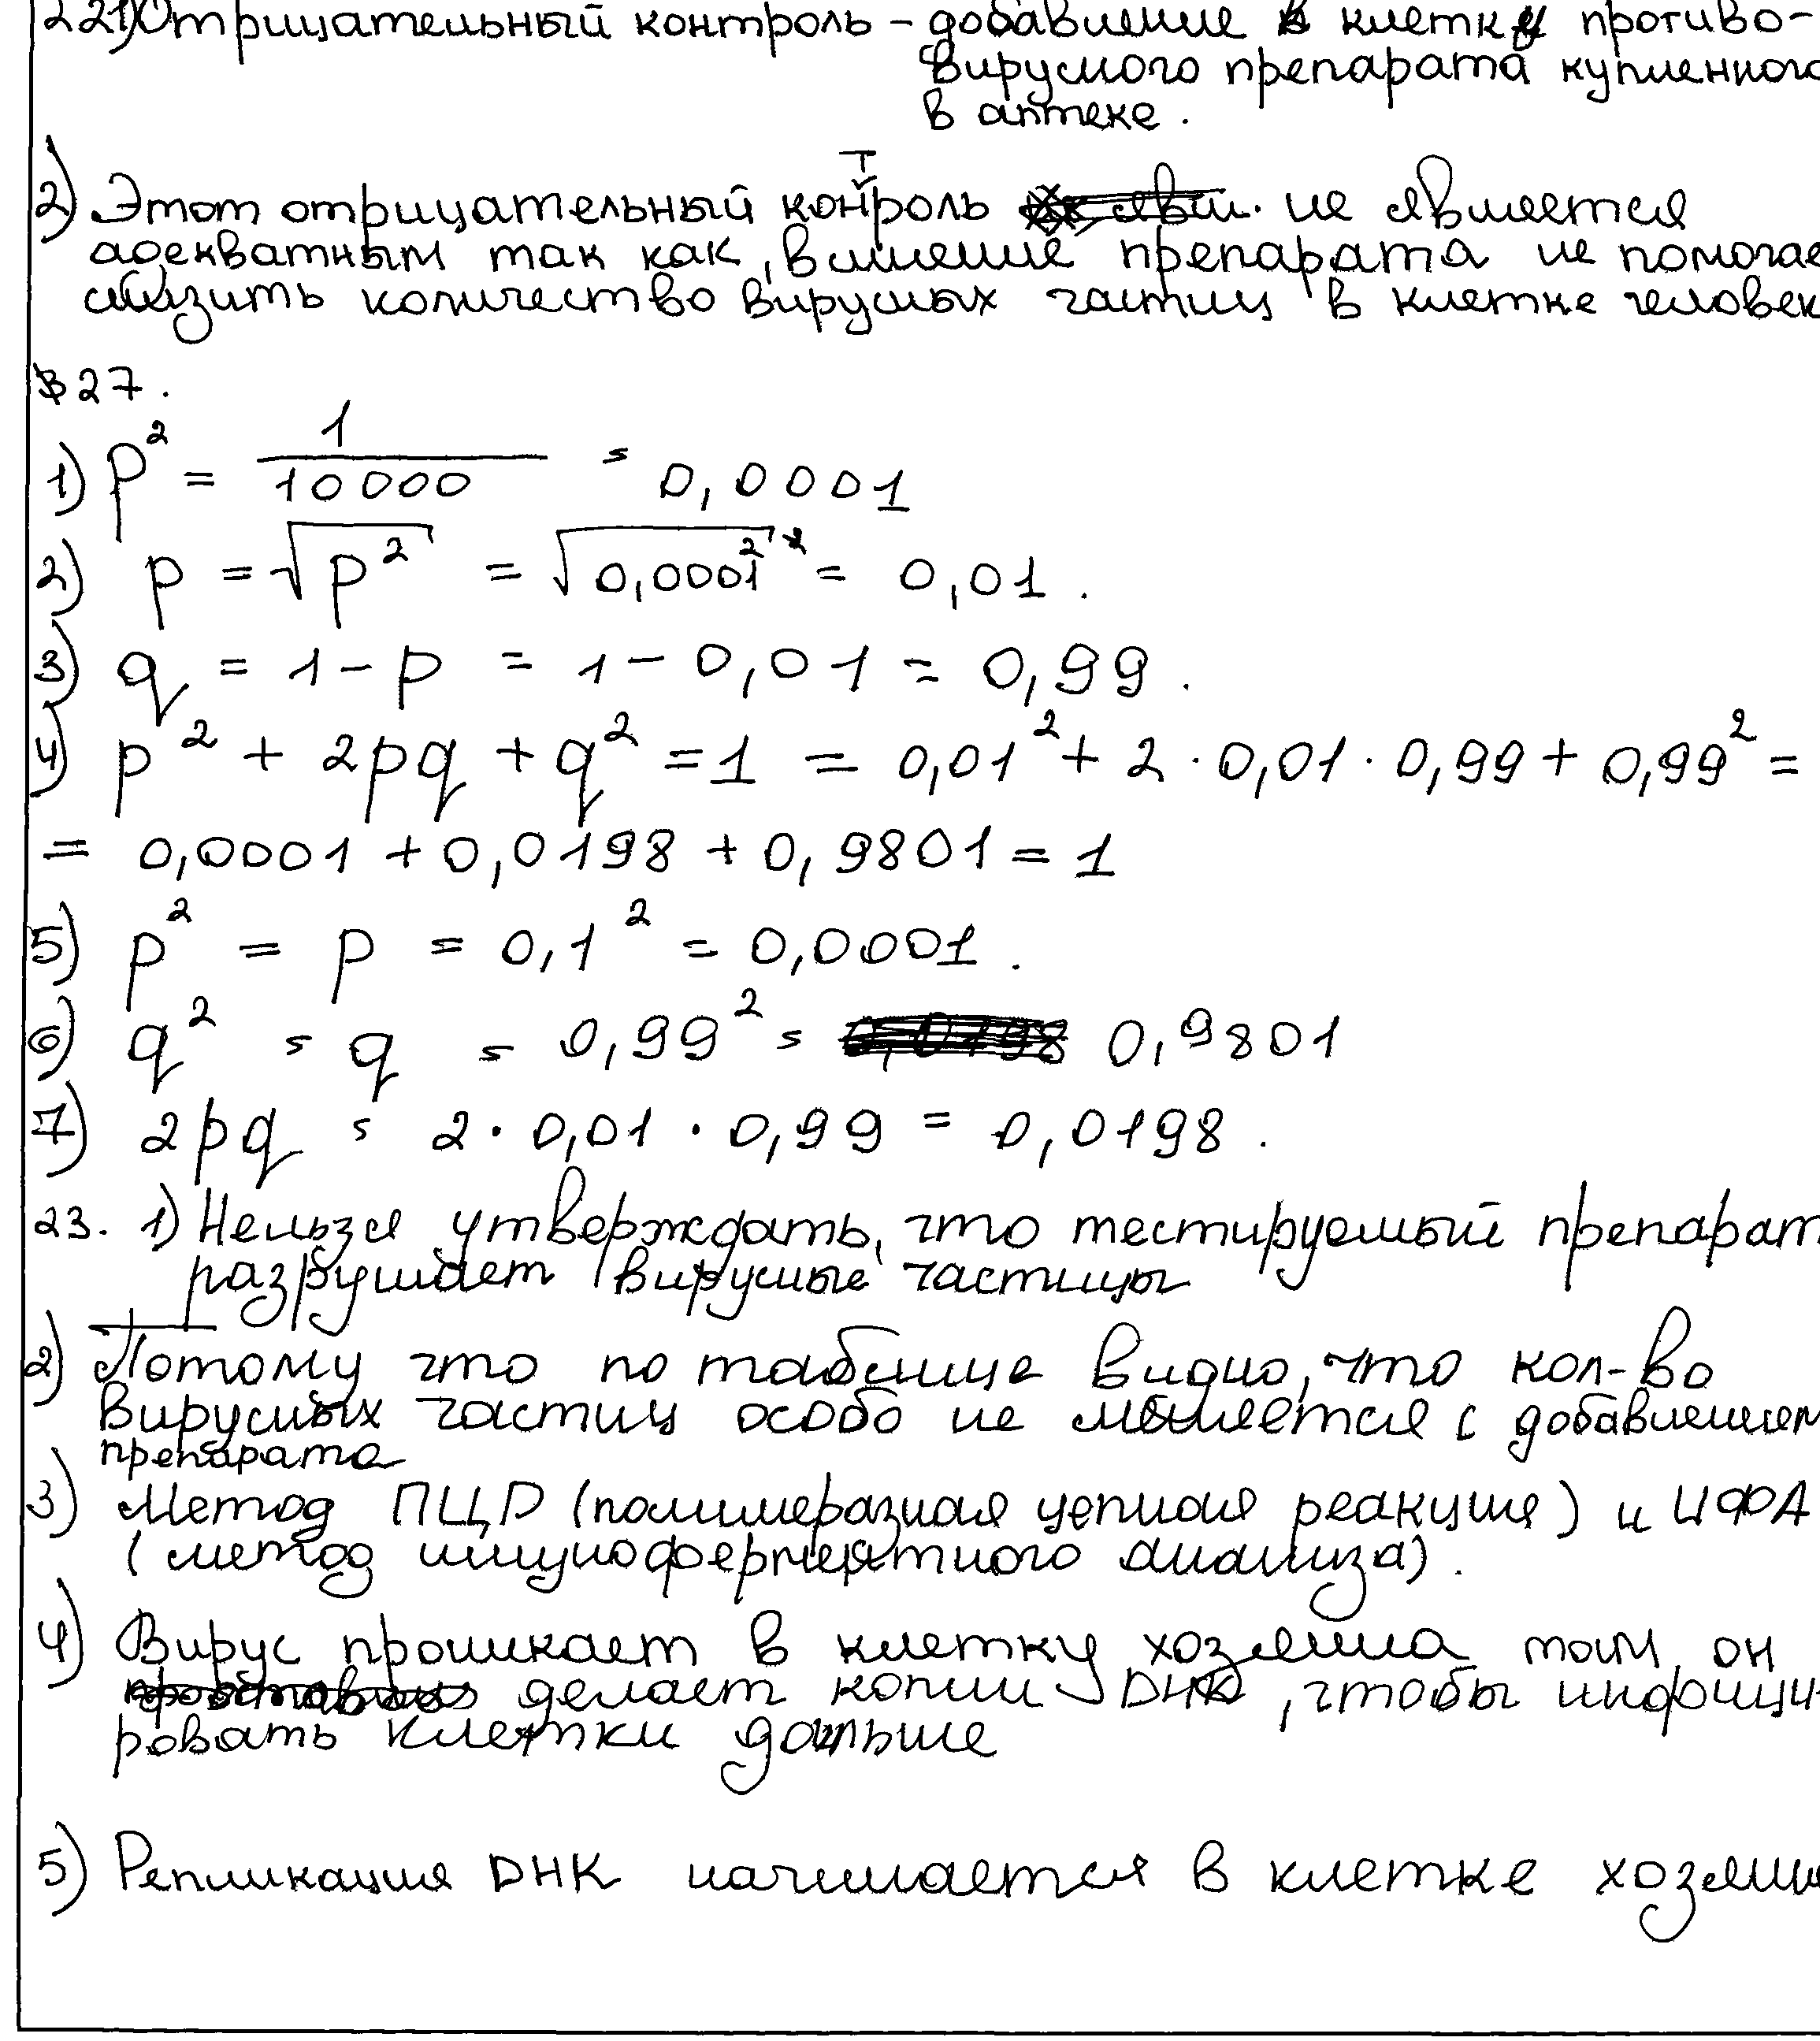 221) Отрицательный контроль – добавление в клетку противо-
вирусного препарата купленного
в аптеке.
2) Этот отрицательный контроль не является
адекватным так как, влияние препарата не помогае
снизить количество вирусных частиц в клетке человек
27.
1) p² = 1/10000 = 0,0001
2) p = √p² = √0,0001² = 0,01.
3) q = 1 - p = 1 - 0,01 = 0,99.
4) p² + 2pq + q² = 1 = 0,01² + 2 · 0,01 · 0,99 + 0,99² =
= 0,0001 + 0,0198 + 0,9801 = 1
5) p² = p = 0,1² = 0,0001.
6) q² = q = 0,99² = 0,9801
7) 2pq = 2 · 0,01 · 0,99 = 0,0198.
23. 1) Нельзя утверждать, что тестируемый препарат
разрушает вирусные частицы
2) Потому что по таблице видно, что кол-во
вирусных частиц особо не меняется с добавлением
препарата
3) Метод ПЦР (полимеразная цепная реакция) и ИФА
(метод имуноферментного анализа).
4) Вирус проникает в клетку хозяина там он
делает копии ДНК, чтобы инфици-
ровать клетки дальше
5) Репликация ДНК начинается в клетке хозяин